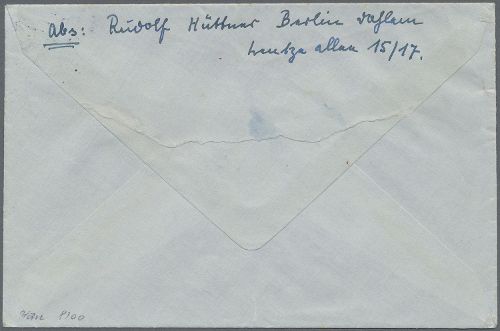 Abs: Rudolf Hüttner Berlin Dahlem
Lentze allee 15/17.